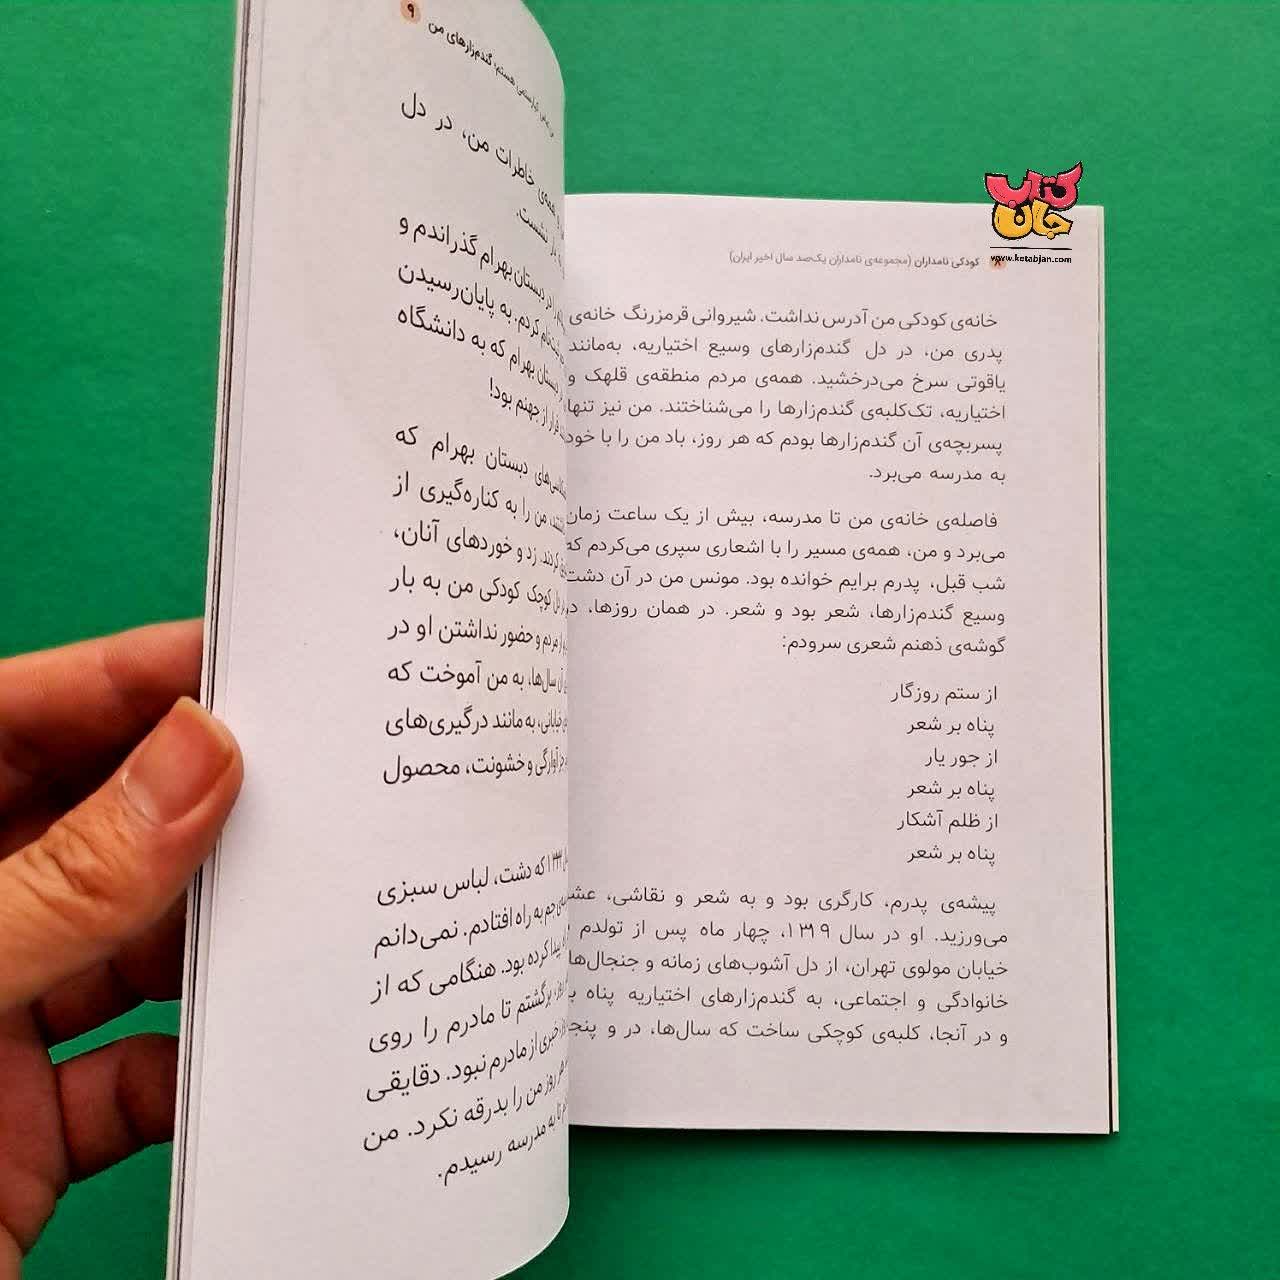 کتاب
جان
www.ketabjan.com
۸ کودکی نامداران (مجموعه‌ی نامداران یک‌صد سال اخیر ایران)
خانه‌ی کودکی من آدرس نداشت. شیروانی قرمزرنگ خانه‌ی
پدری من، در دل گندم‌زارهای وسیع اختیاریه، به‌مانند
یاقوتی سرخ می‌درخشید. همه‌ی مردم منطقه‌ی قلهک و
اختیاریه، تک‌کلبه‌ی گندم‌زارها را می‌شناختند. من نیز تنها
پسربچه‌ی آن گندم‌زارها بودم که هر روز، باد من را با خود
به مدرسه می‌برد.
فاصله‌ی خانه‌ی من تا مدرسه، بیش از یک ساعت زمان
می‌برد و من، همه‌ی مسیر را با اشعاری سپری می‌کردم که
شب قبل، پدرم برایم خوانده بود. مونس من در آن دشت
وسیع گندم‌زارها، شعر بود و شعر. در همان روزها، در
گوشه‌ی ذهنم شعری سرودم:
از ستم روزگار
پناه بر شعر
از جور یار
پناه بر شعر
از ظلم آشکار
پناه بر شعر
پیشه‌ی پدرم، کارگری بود و به شعر و نقاشی، عشق
می‌ورزید. او در سال ۱۳۱۹، چهار ماه پس از تولدم
خیابان مولوی تهران، از دل آشوب‌های زمانه و جنجال‌های
خانوادگی و اجتماعی، به گندم‌زارهای اختیاریه پناه
و در آنجا، کلبه‌ی کوچکی ساخت که سال‌ها، در و
هستم، گندم‌زارهای من ۹
همه‌ی خاطرات من، در دل
نشست.
در دبستان بهرام گذراندم و
کردم. به پایان‌رسیدن
دبستان بهرام که به دانشگاه
فرار از جهنم بود!
دبستان بهرام که
من را به کناره‌گیری از
کردند. زد و خوردهای آنان،
دل کوچک کودکی من به بار
از مردم و حضور نداشتن او در
آن سال‌ها، به من آموخت که
خیابانی، به مانند درگیری‌های
جز آوارگی و خشونت، محصول
که دشت، لباس سبزی
جم به راه افتادم. نمی‌دانم
پیدا کرده بود. هنگامی که از
برگشتم تا مادرم را روی
خبری از مادرم نبود. دقایقی
هر روز من را بدرقه نکرد. من
تا به مدرسه رسیدم.